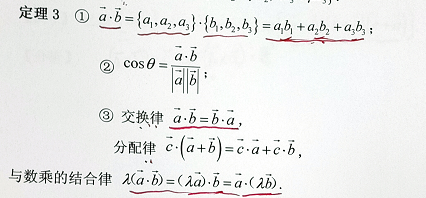 定理 3 ① $\vec{a}\cdot\vec{b}=\{a_1,a_2,a_3\}\cdot\{b_1,b_2,b_3\}=a_1b_1+a_2b_2+a_3b_3$；
② $\cos\theta=\dfrac{\vec{a}\cdot\vec{b}}{|\vec{a}||\vec{b}|}$；
③ 交换律 $\vec{a}\cdot\vec{b}=\vec{b}\cdot\vec{a}$,
分配律 $\vec{c}\cdot(\vec{a}+\vec{b})=\vec{c}\cdot\vec{a}+\vec{c}\cdot\vec{b}$,
与数乘的结合律 $\lambda(\vec{a}\cdot\vec{b})=(\lambda\vec{a})\cdot\vec{b}=\vec{a}\cdot(\lambda\vec{b})$.